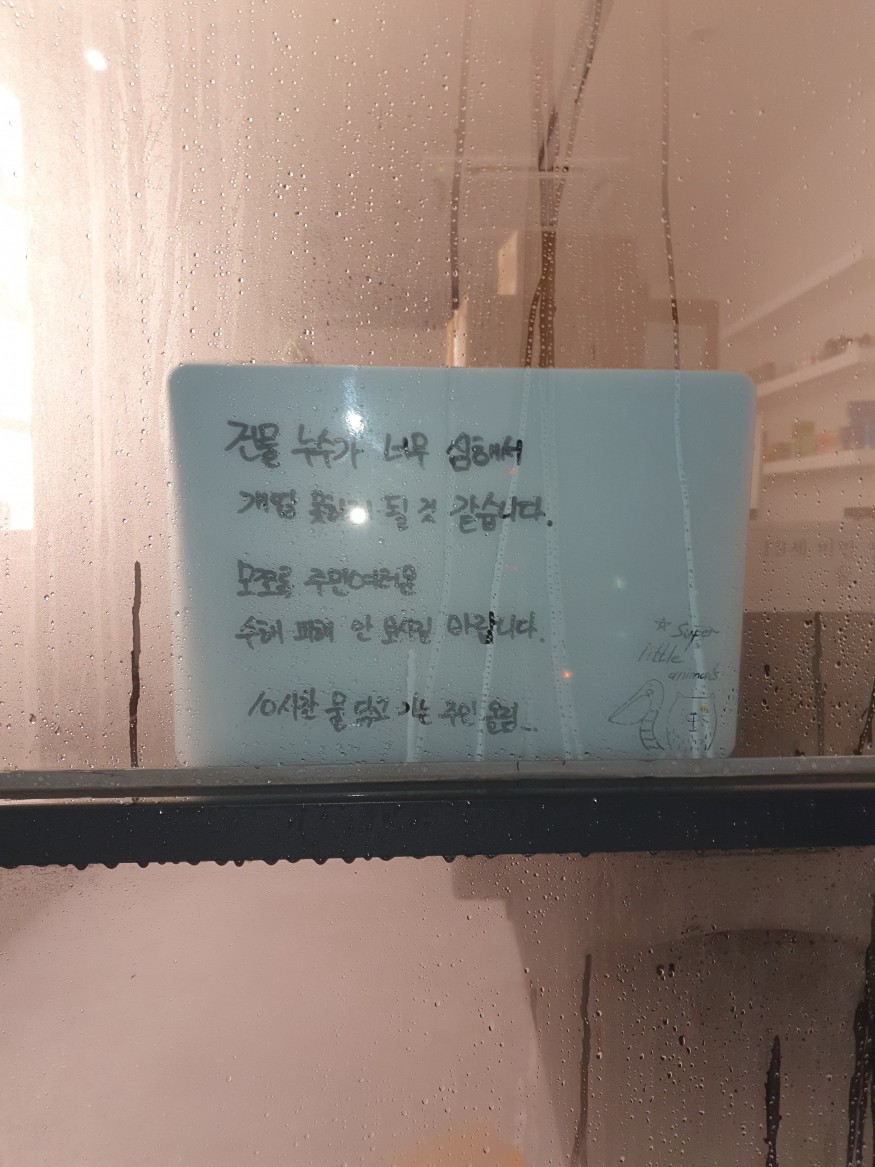 건물 누수가 너무 심해서
개점 못하게 될 것 같습니다.
모쪼록 주민여러분
수해 피해 안 보시길 바랍니다.
10시간 물 닦고 가는 주인 올림..
☆ Super
little
animals